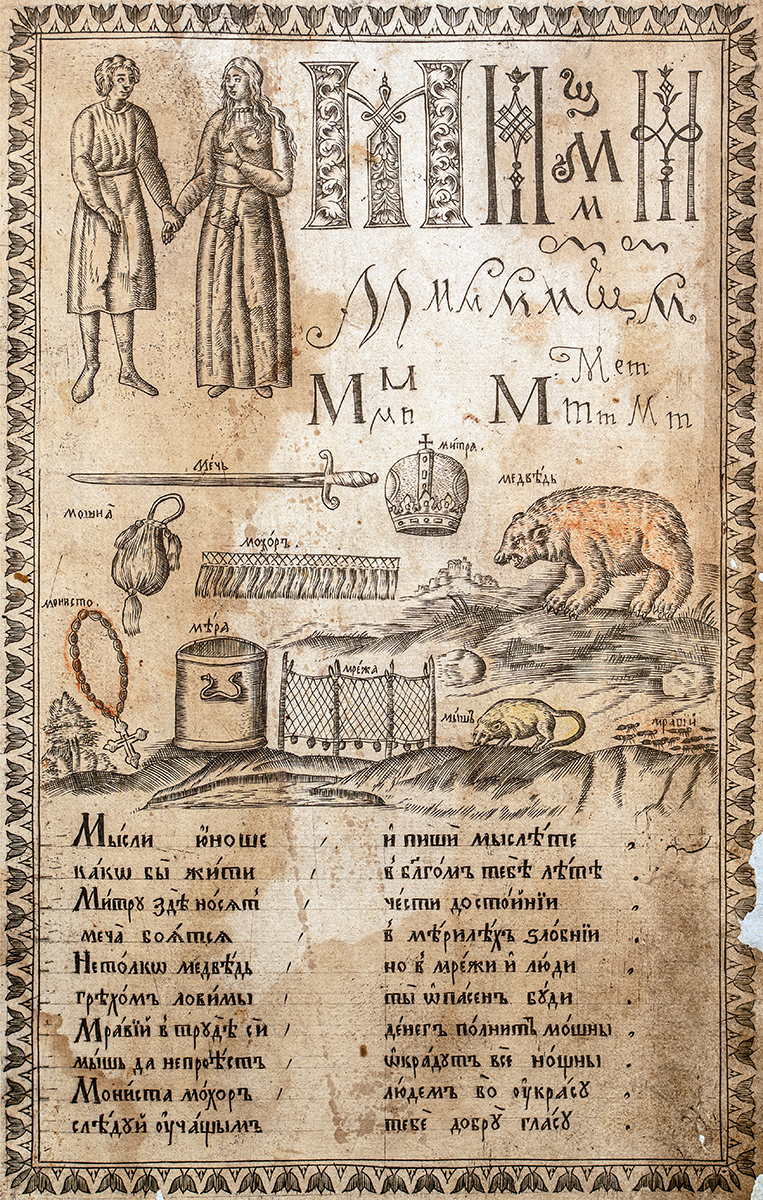 М М щ М м М
М м м м м щ м
М м мп М Мет м т т М т
Мечь
митра.
медвѣдь
мошна̀
мохо́ръ.
монисто.
мѣ́ра
мре́жа
мы́шь
мра́вїй
Мы́сли ю҆́ноше , и҆ пишѝ мыслѣ́те ,
ка́кѡ бы̀ жи́ти , в̾ бл҃го́мъ тебѣ̀ лѣ́тѣ .
Ми́тру здѣ̀ но́сятъ , че́сти досто́йнїи ,
меча̀ боя́тся в̾ мѣри́лѣхъ ѕло́бнїи .
Нето́лкѡ медвѣ́дь , но в̾ мре́жи и҆ лю́ди ,
грѣхо́мъ лови́мы , ты̀ ѡ҆па́сенъ бу́ди .
Мра́вїй в̾ трудѣ̀ сѝ , де́негъ по́лнитъ мо́шны ,
мы́шь да непроѣ́стъ , ѡ҆краду́тъ всѐ но́щны .
Мони́ста мо́хоръ , лю́демъ во ᲂу҆кра́су ,
слѣ́дуй ᲂу҆ча́щымъ тебѐ добру̀ гла́су .